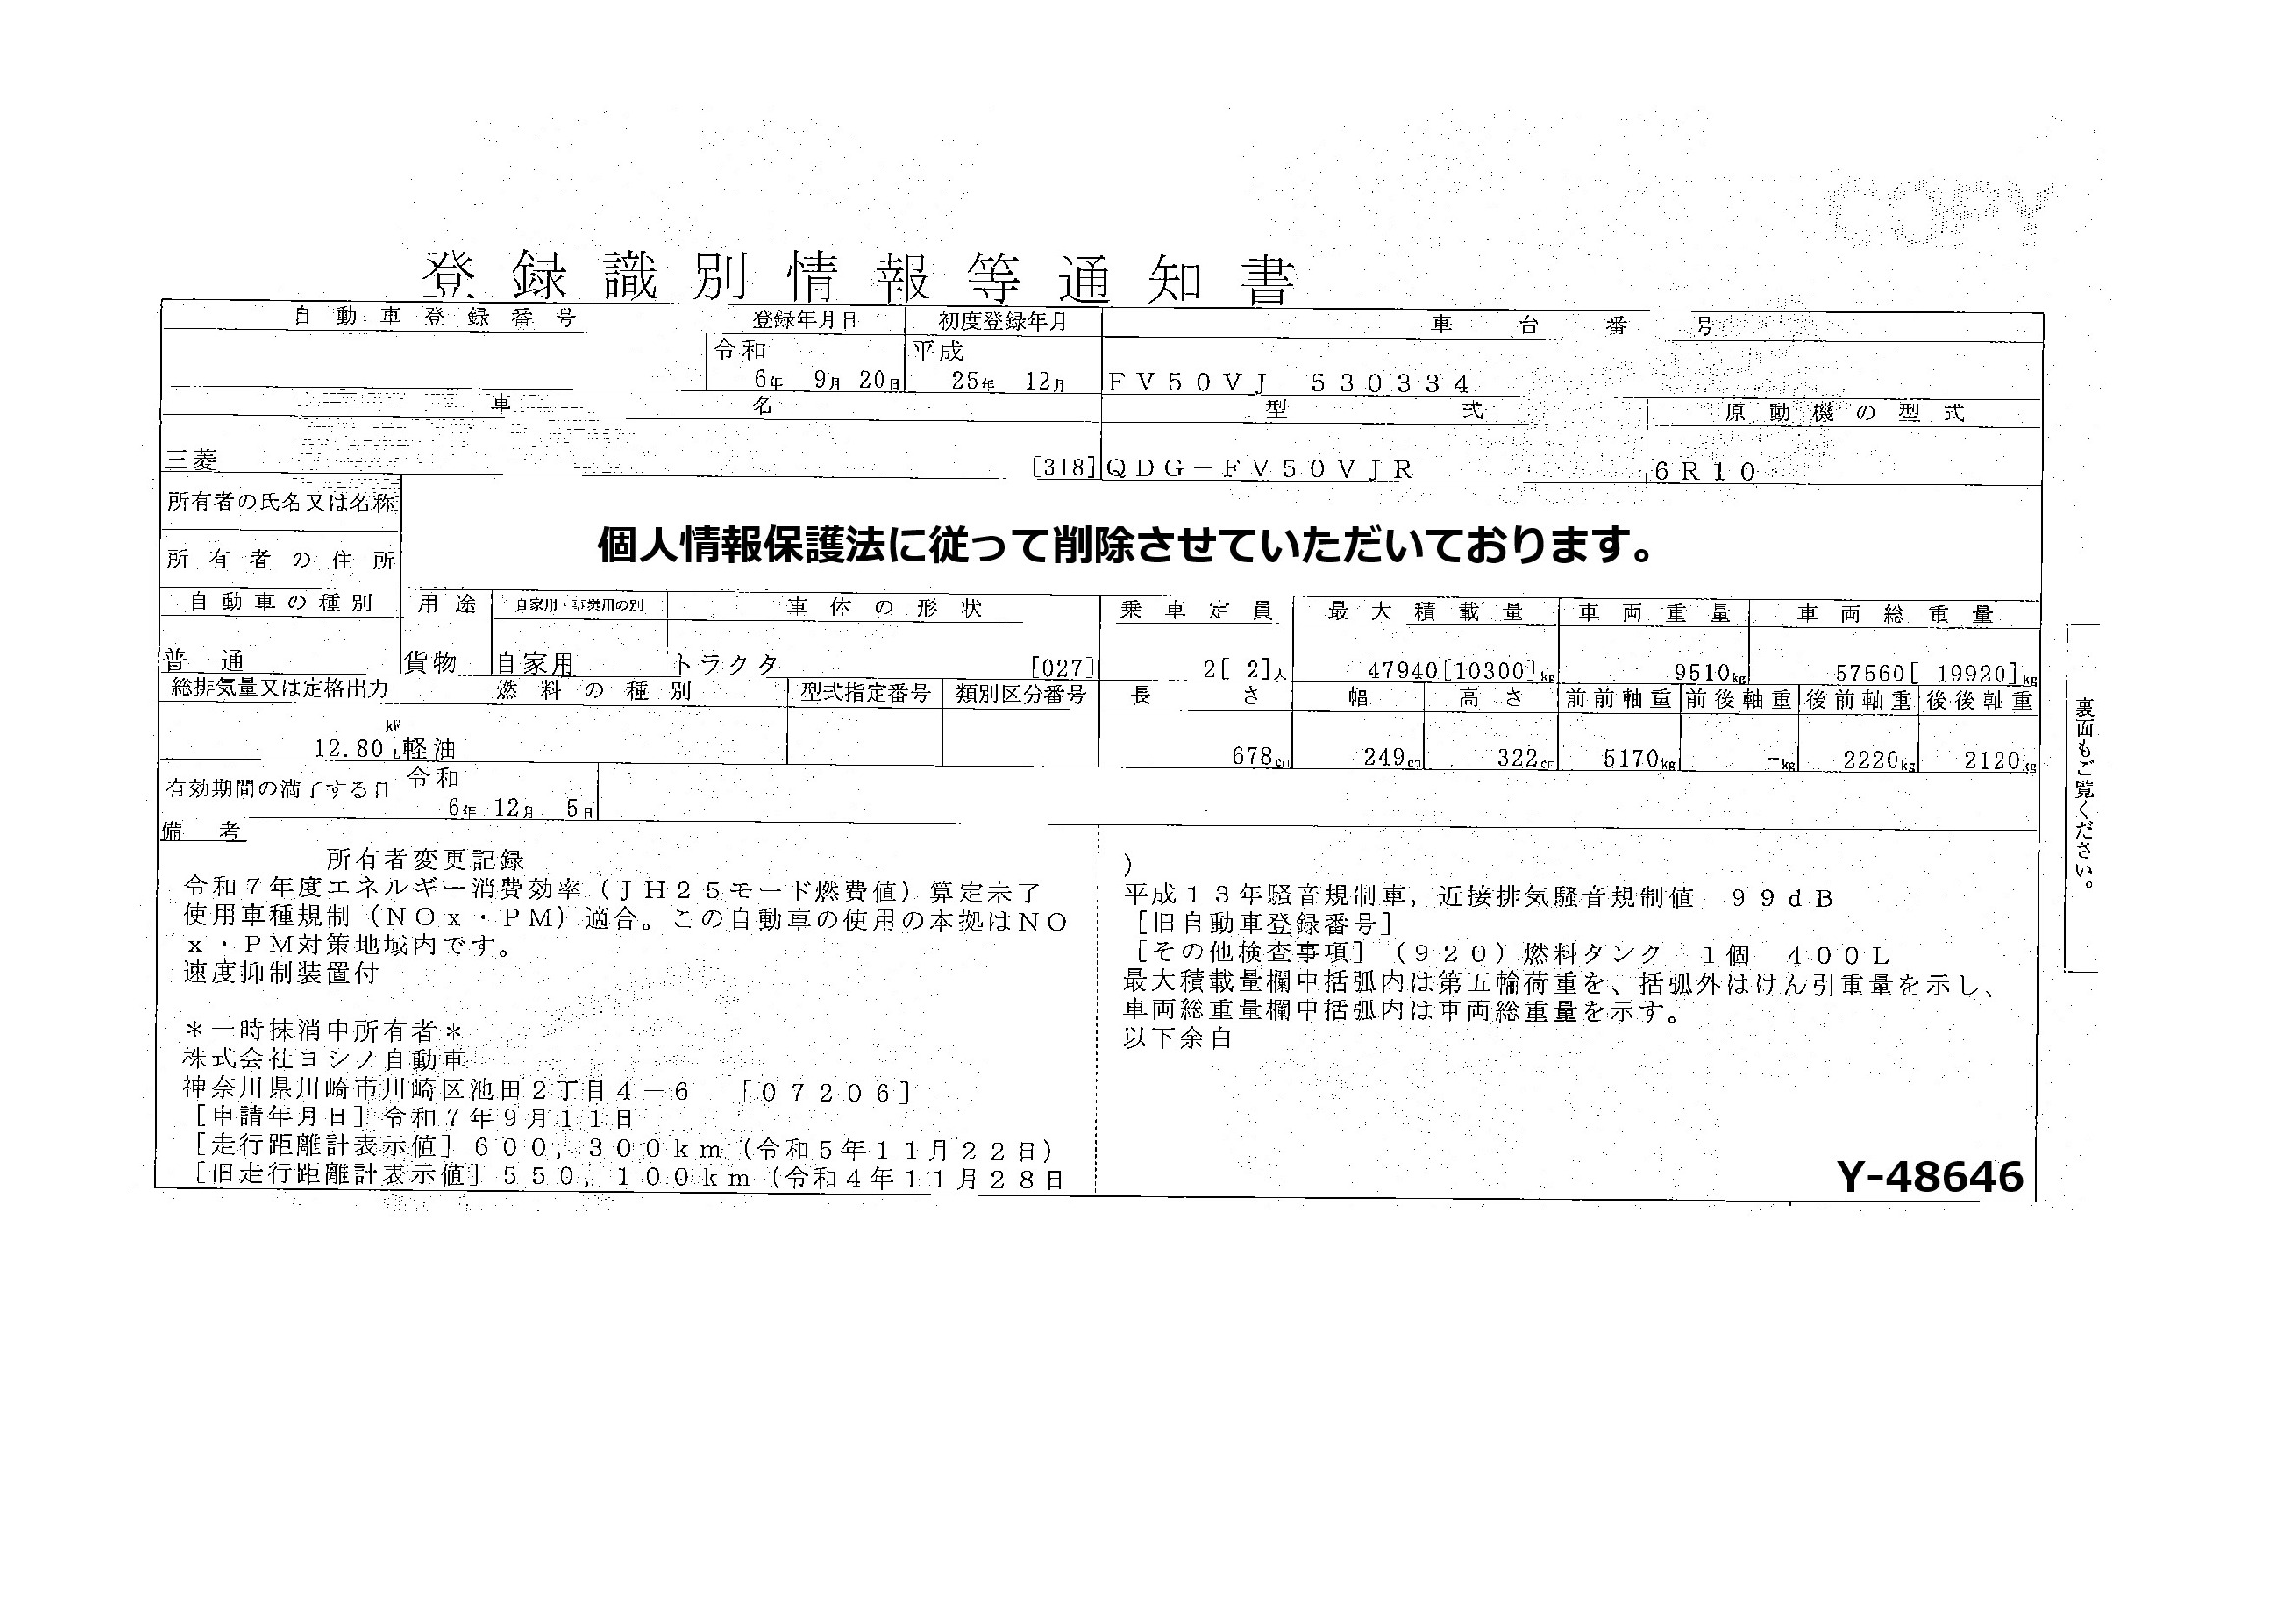 COPY
登録識別情報等通知書
自動車登録番号 登録年月日 初度登録年月 車台番号
令和 平成
6年 9月 20日 25年 12月 FV50VJ 530334
車名 型式 原動機の型式
三菱 [318] QDG-FV50VJR 6R10
所有者の氏名又は名称
個人情報保護法に従って削除させていただいております。
所有者の住所
自動車の種別 用途 自家用・事業用の別 車体の形状 乗車定員 最大積載量 車両重量 車両総重量
普通 貨物 自家用 トラクタ [027] 2[ 2]人 47940[10300]kg 9510kg 57560[ 19920]kg
総排気量又は定格出力 燃料の種別 型式指定番号 類別区分番号 長さ 幅 高さ 前前軸重 前後軸重 後前軸重 後後軸重
kW
12.80 L 軽油 678cm 249cm 322cm 5170kg -kg 2220kg 2120kg
有効期間の満了する日 令和
6年 12月 5日
備考
所有者変更記録
令和7年度エネルギー消費効率(JH25モード燃費値)算定未了
使用車種規制(NOx・PM)適合。この自動車の使用の本拠はNO
x・PM対策地域内です。
速度抑制装置付
*一時抹消中所有者*
株式会社ヨシノ自動車
神奈川県川崎市川崎区池田2丁目4-6 [07206]
[申請年月日]令和7年9月11日
[走行距離計表示値]600,300km(令和5年11月22日)
[旧走行距離計表示値]550,100km(令和4年11月28日
)
平成13年騒音規制車,近接排気騒音規制値 99dB
[旧自動車登録番号]
[その他検査事項](920)燃料タンク 1個 400L
最大積載量欄中括弧内は第五輪荷重を、括弧外はけん引重量を示し、
車両総重量欄中括弧内は車両総重量を示す。
以下余白
Y-48646
裏面もご覧ください。